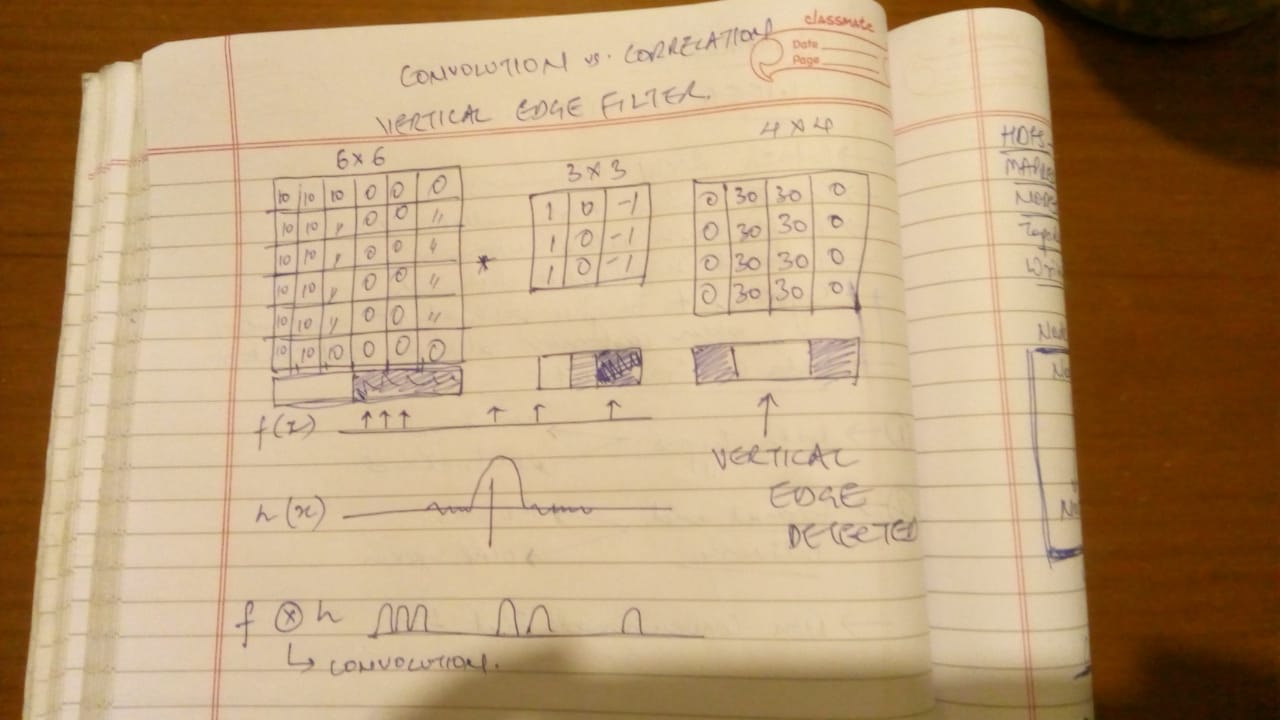 classmate
Date
Page
CONVOLUTION vs. CORRELATION
VERTICAL EDGE FILTER.
6×6
3×3
4×4
10 10 10 0 0 0
10 10 " 0 0 "
10 10 " 0 0 "
10 10 " 0 0 "
10 10 " 0 0 "
10 10 10 0 0 0
*
1 0 -1
1 0 -1
1 0 -1
0 30 30 0
0 30 30 0
0 30 30 0
0 30 30 0
f(x)
VERTICAL
EDGE
DETECTED
h(x)
f ⊗ h
↳ CONVOLUTION.
HDFS